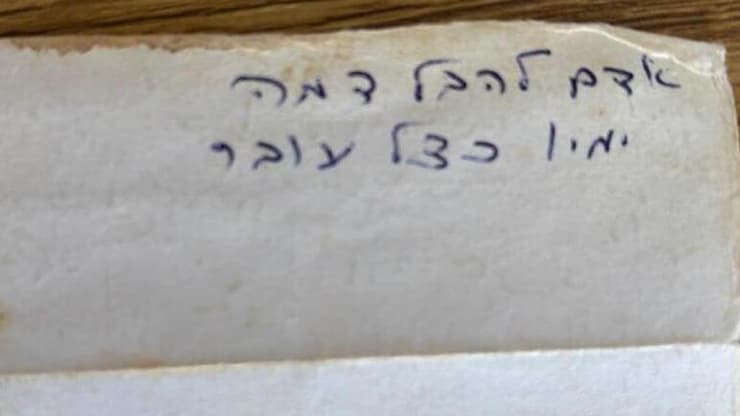 אדם להבל דמה
ימיו כצל עובר